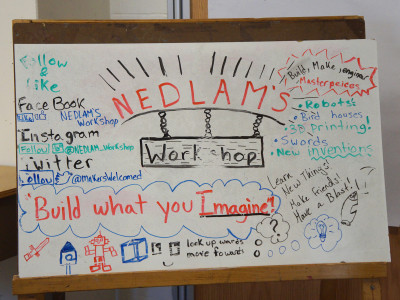 Follow
&
Like
FaceBook
NEDLAM'S
Workshop
Instagram
Follow @NEDLAM_Workshop
Twitter
Follow @makerswelcomed
NEDLAM'S
Workshop
Build, Make, engineer
Masterpieces
• Robots
• Bird houses
• 3D Printing!
• Swords
• New Inventions
Learn
New Things!
Make Friends!
Have a Blast!
"Build what you Imagine"
look upwards
move forward
?